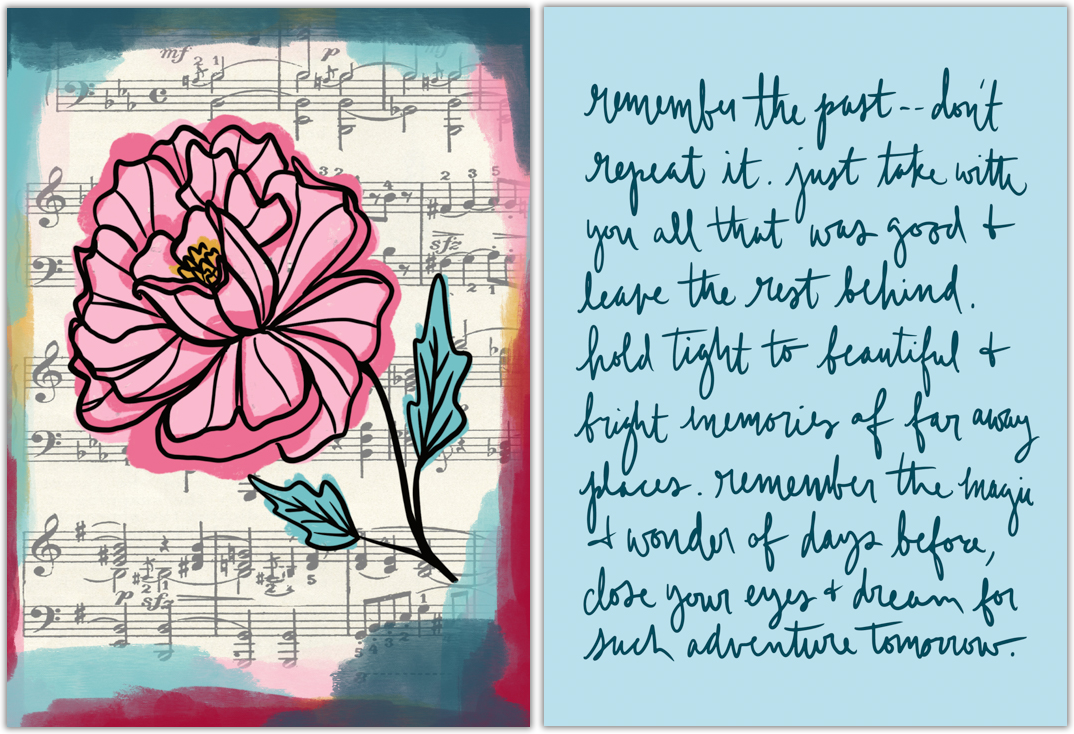 remember the past--don't
repeat it. just take with
you all that was good +
leave the rest behind.
hold tight to beautiful +
bright memories of far away
places. remember the magic
+ wonder of days before,
close your eyes + dream for
such adventure tomorrow.
mf
2 1
p
3 2
4
2 3 5
sfz
2 1
5
p sfz
1
5 4 3 2